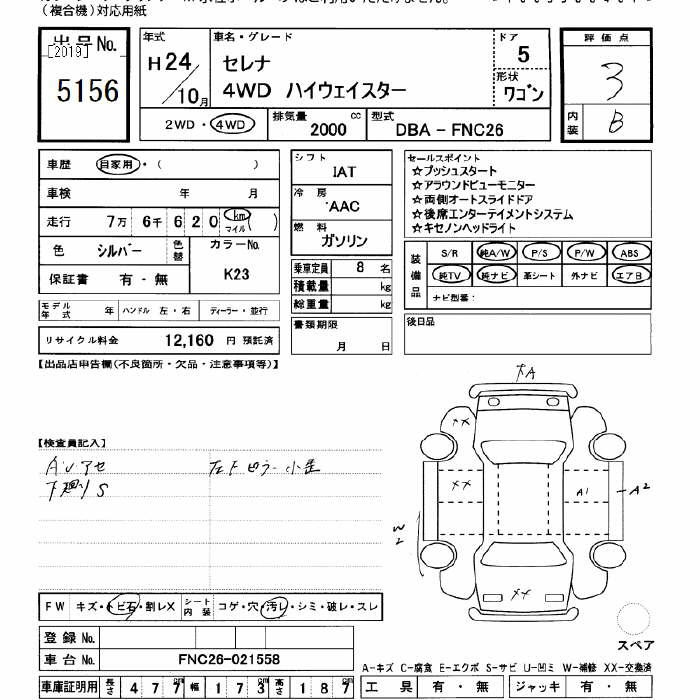 （複合機）対応用紙
出品No.
[2019]
5156
年式
H24／10月
車名・グレード
セレナ
4WD ハイウェイスター
ドア
5
形状
ワゴン
2WD・4WD
排気量 2000 cc
型式 DBA－FNC26
評価点
3
内装 B
車歴 自家用・（ ）
車検 年 月
走行 7万 6千 6 2 0 km マイル（ ）
色 シルバー 色替 カラーNo. K23
保証書 有・無
モデル年式 年 ハンドル 左・右 ディーラー・並行
リサイクル料金 12,160 円 預託済
シフト
IAT
冷房
AAC
燃料
ガソリン
乗車定員 8 名
積載量 kg
総重量 kg
書類期限
月 日
セールスポイント
☆プッシュスタート
☆アラウンドビューモニター
☆両側オートスライドドア
☆後席エンターテイメントシステム
☆キセノンヘッドライト
装備品
S/R 純A/W P/S P/W ABS
純TV 純ナビ 革シート 外ナビ エアB
ナビ型番：
後日品
【出品店申告欄（不良箇所・欠品・注意事項等）】
【検査員記入】
下廻りS
A
XX
XX
A1
A2
W2
XX
スペア
FW キズ・トビ石・割レX シート内装 コゲ・穴・汚レ・シミ・破レ・スレ
登録No.
車台No. FNC26-021558
車庫証明用 長さ 477cm 幅 173cm 高さ 187cm
A-キズ C-腐食 E-エクボ S-サビ U-凹ミ W-補修 XX-交換済
工具 有・無 ジャッキ 有・無